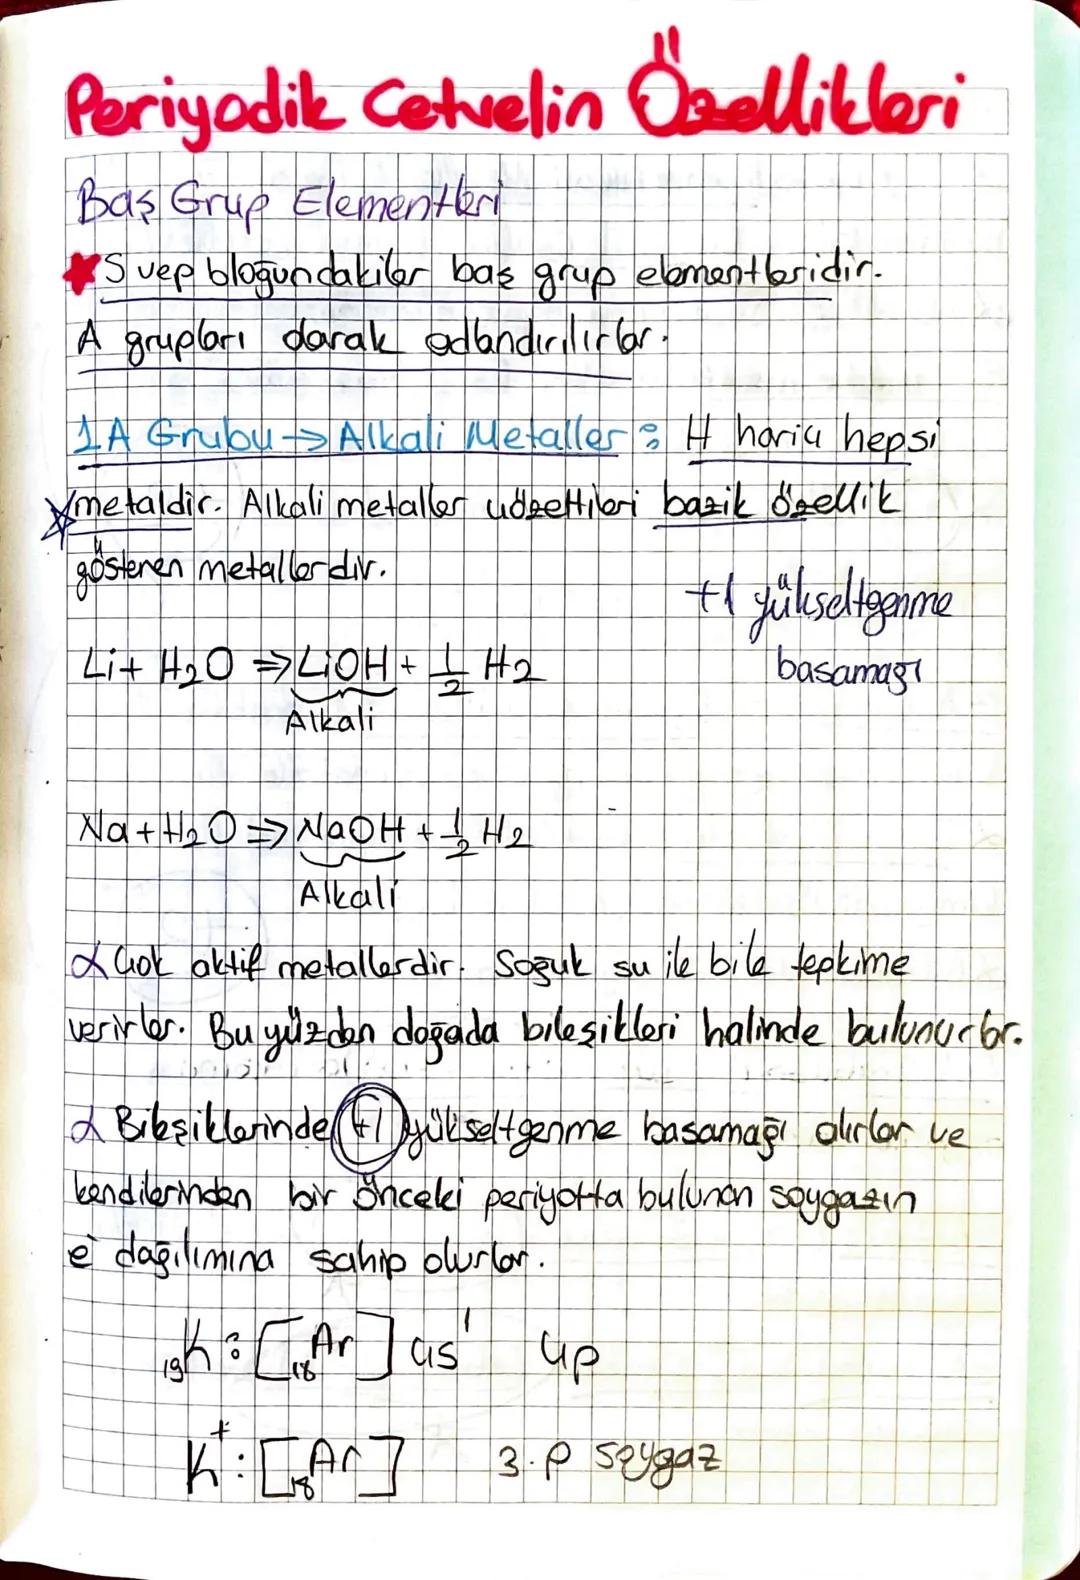 Periyodik Cetvelin Özellikleri
Baş Grup Elementleri
S ve p bloğundakiler baş grup elementleridir.
A grupları olarak adlandırılırlar.
1A Grubu → Alkali Metaller : H hariç hepsi
metaldir. Alkali metaller çözeltileri bazik özellik
gösteren metallerdir.
+1 yükseltgenme
basamagı
Li + H2O ⇒ LiOH + 1/2 H2
Alkali
Na + H2O ⇒ NaOH + 1/2 H2
Alkali
α Çok aktif metallerdir. Soğuk su ile bile tepkime
verirler. Bu yüzden doğada bileşikleri halinde bulunurlar.
α Bileşiklerinde +1 yükseltgenme basamağı alırlar ve
kendilerinden bir önceki periyotta bulunan soygazın
e⁻ dağılımına sahip olurlar.
₁₉K : [₁₈Ar] 4s¹ 4p
K⁺ : [₁₈Ar] 3.p soygaz